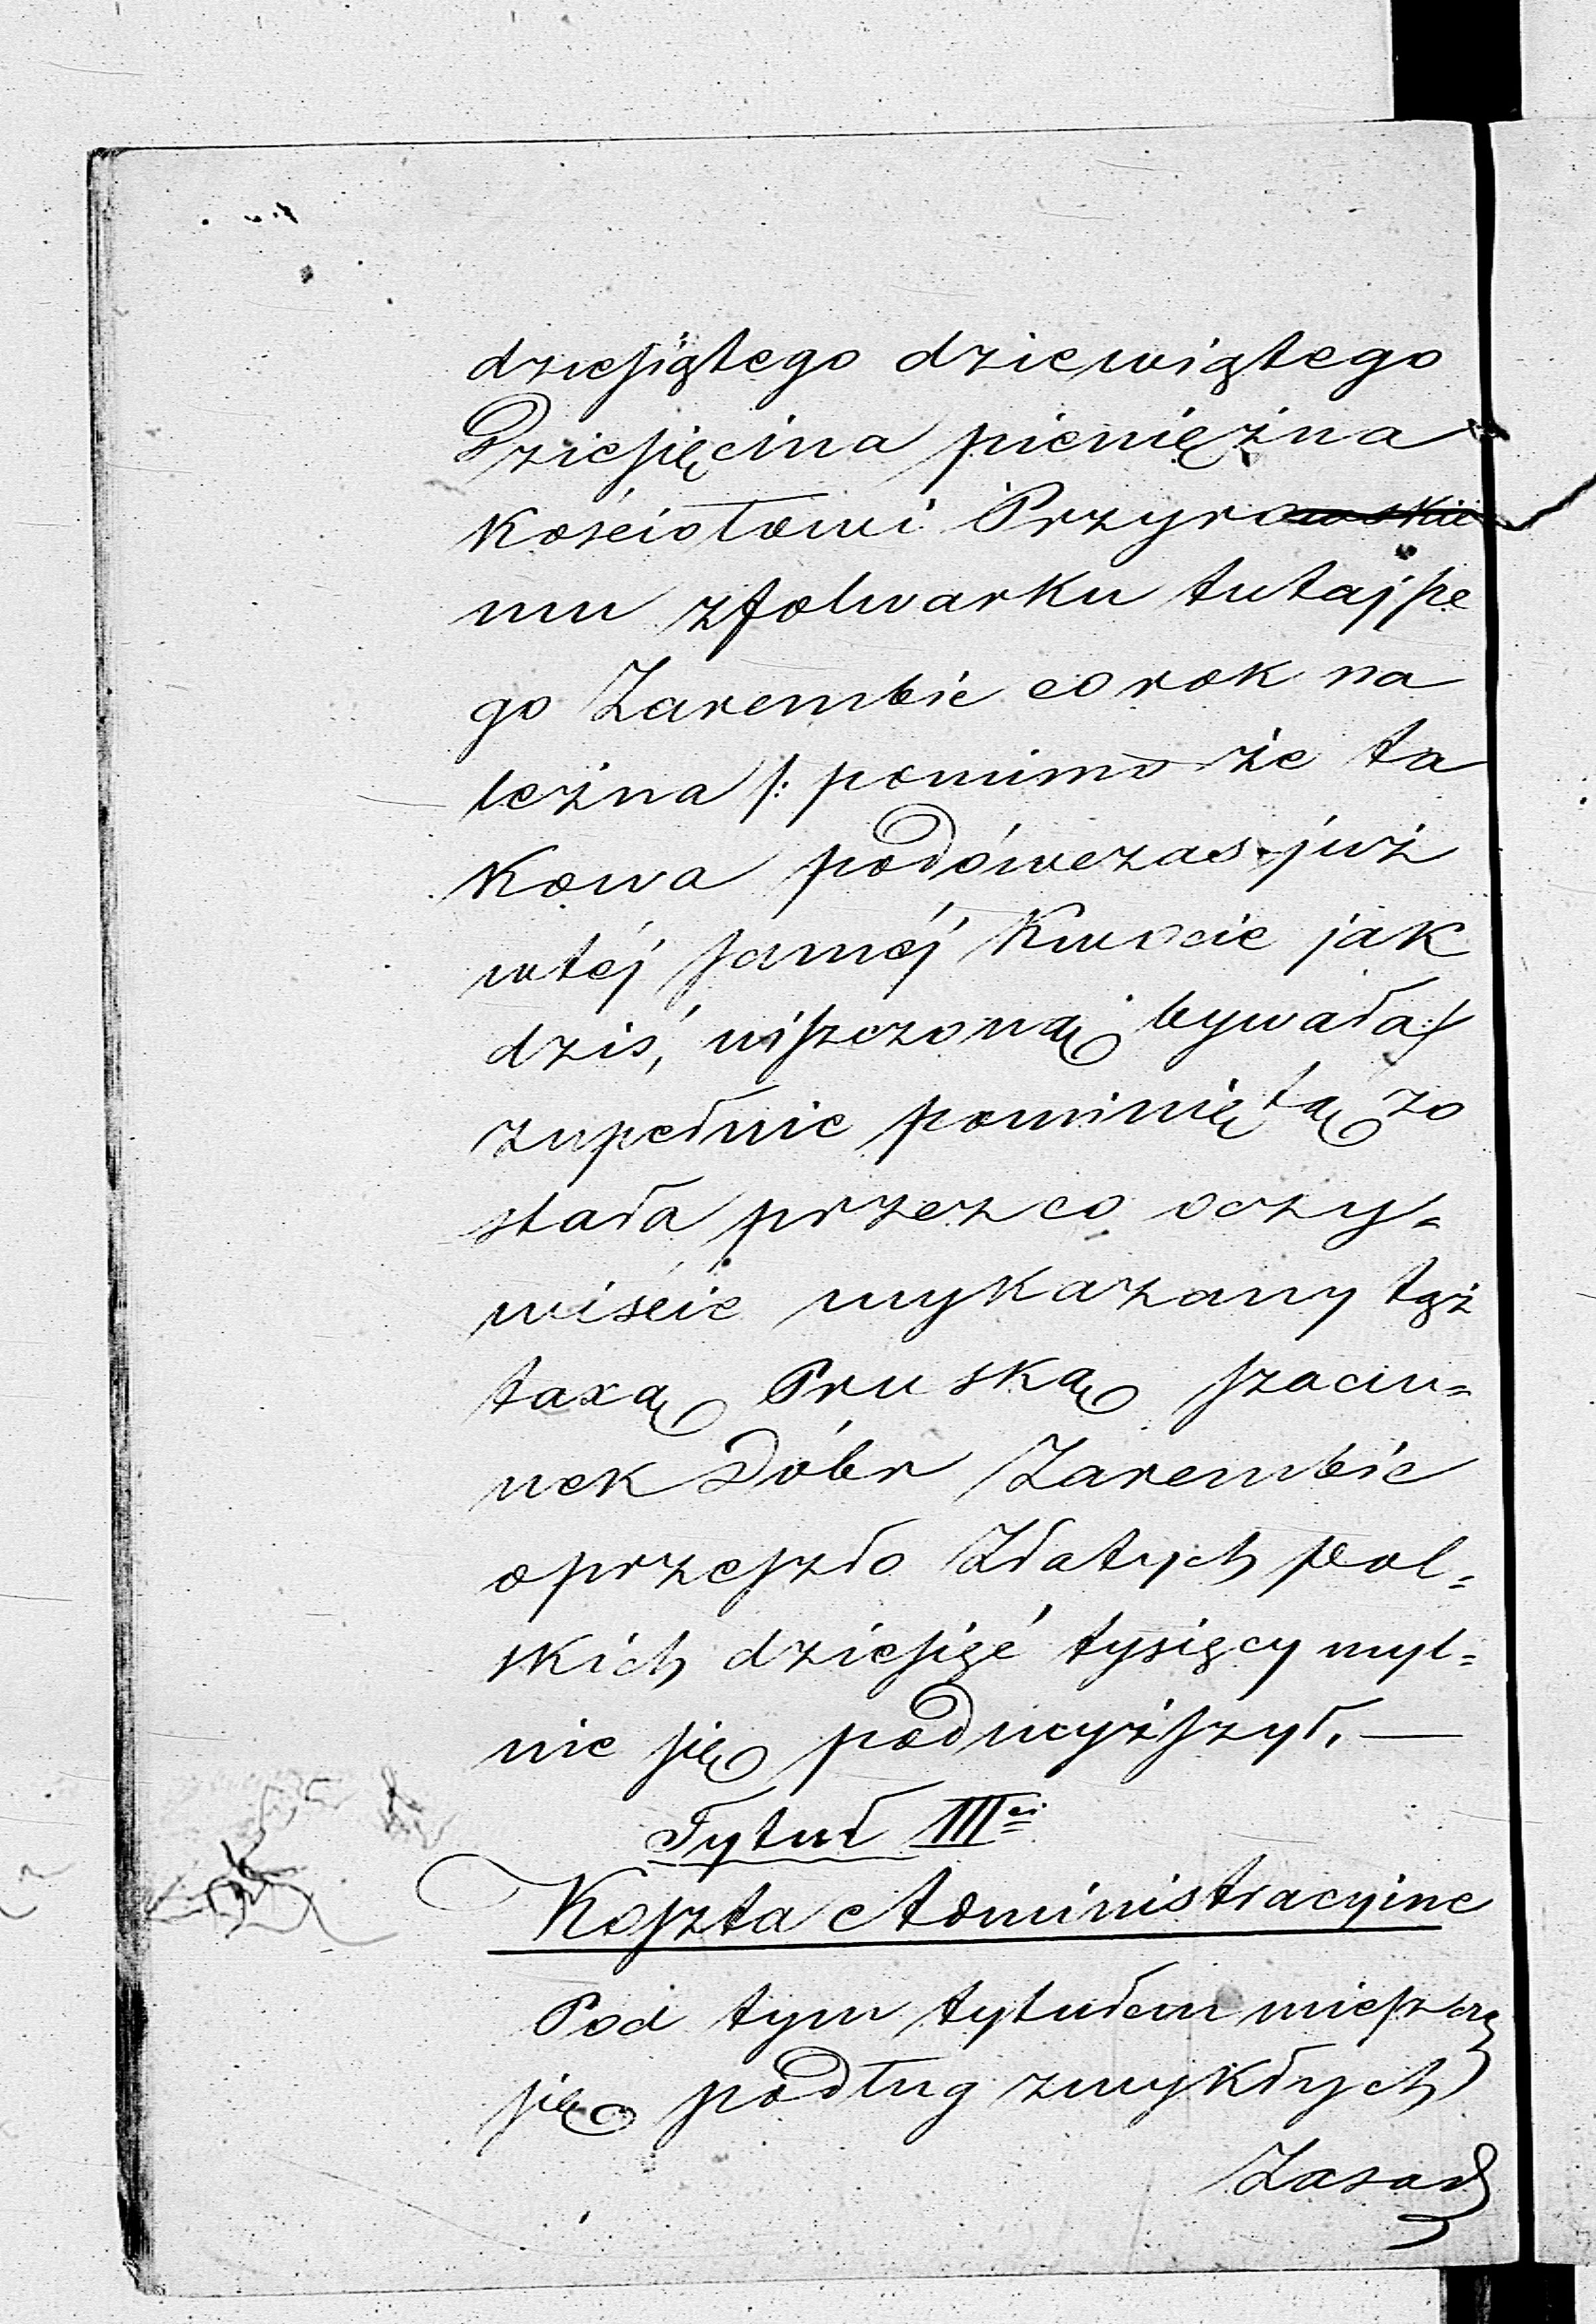 dziesiątego dziewiątego
Dziesięcina pieniężna
Kościołowi Przyrowskie
mu z folwarku tutajsze
go Zarembic co rok na
leżna /: pomimo że ta
Kowa podówczas już
w téj saméj Kwocie jak
dziś, uiszczoną bywała :/
zupełnie pominiętą zo
stała przez co oczy=
wiście wykazany tąż
taxą Pruską szacu=
nek Dóbr Zarembic
o przeszło Złotych pol=
skich dziesięć tysięcy myl=
nie się podwyższył. —
Tytuł III ci
Koszta Administracyine
Pod tym tytułem mieszczą
się podług zwykłych
Zasad